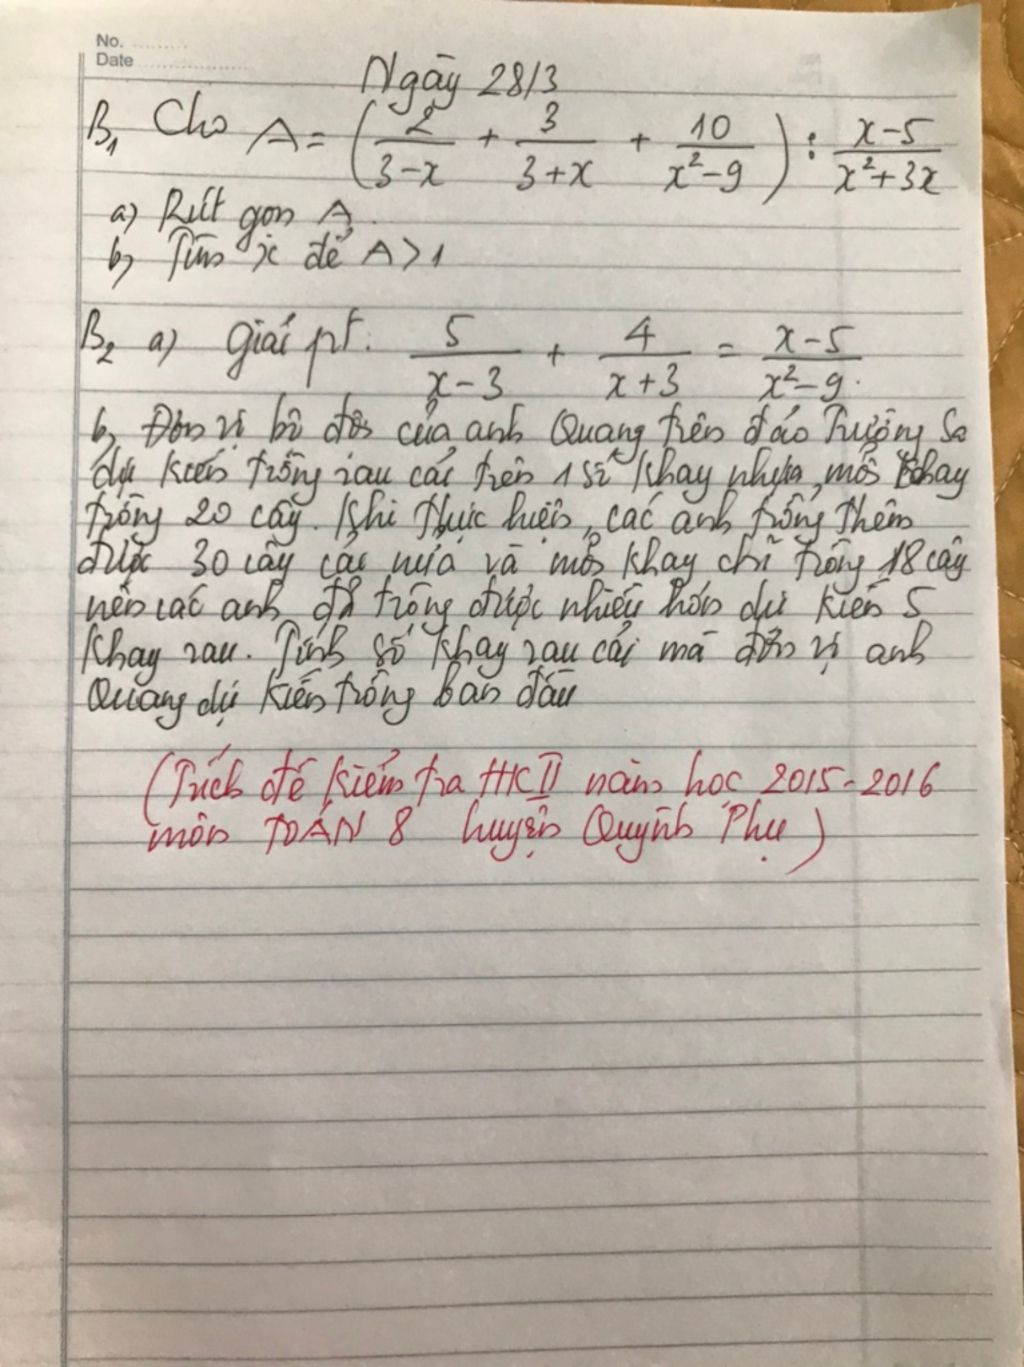 No. ..........
Date ....................
Ngày 28/3
B1 Cho A = (2/(3-x) + 3/(3+x) + 10/(x²-9)) : (x-5)/(x²+3x)
a) Rút gọn A.
b) Tìm x để A > 1
B2 a) Giải pt: 5/(x-3) + 4/(x+3) = (x-5)/(x²-9).
b) Đơn vị bộ đội của anh Quang trên đảo Trường Sa
dự kiến trồng rau cải trên 1 số khay nhựa, mỗi khay
trồng 20 cây. Khi thực hiện, các anh trồng thêm
được 30 cây cải nữa và mỗi khay chỉ trồng 18 cây
nên các anh đã trồng được nhiều hơn dự kiến 5
khay rau. Tính số khay rau cải mà đơn vị anh
Quang dự kiến trồng ban đầu
(Trích đề kiểm tra HKII năm học 2015-2016
môn TOÁN 8 huyện Quỳnh Phụ)